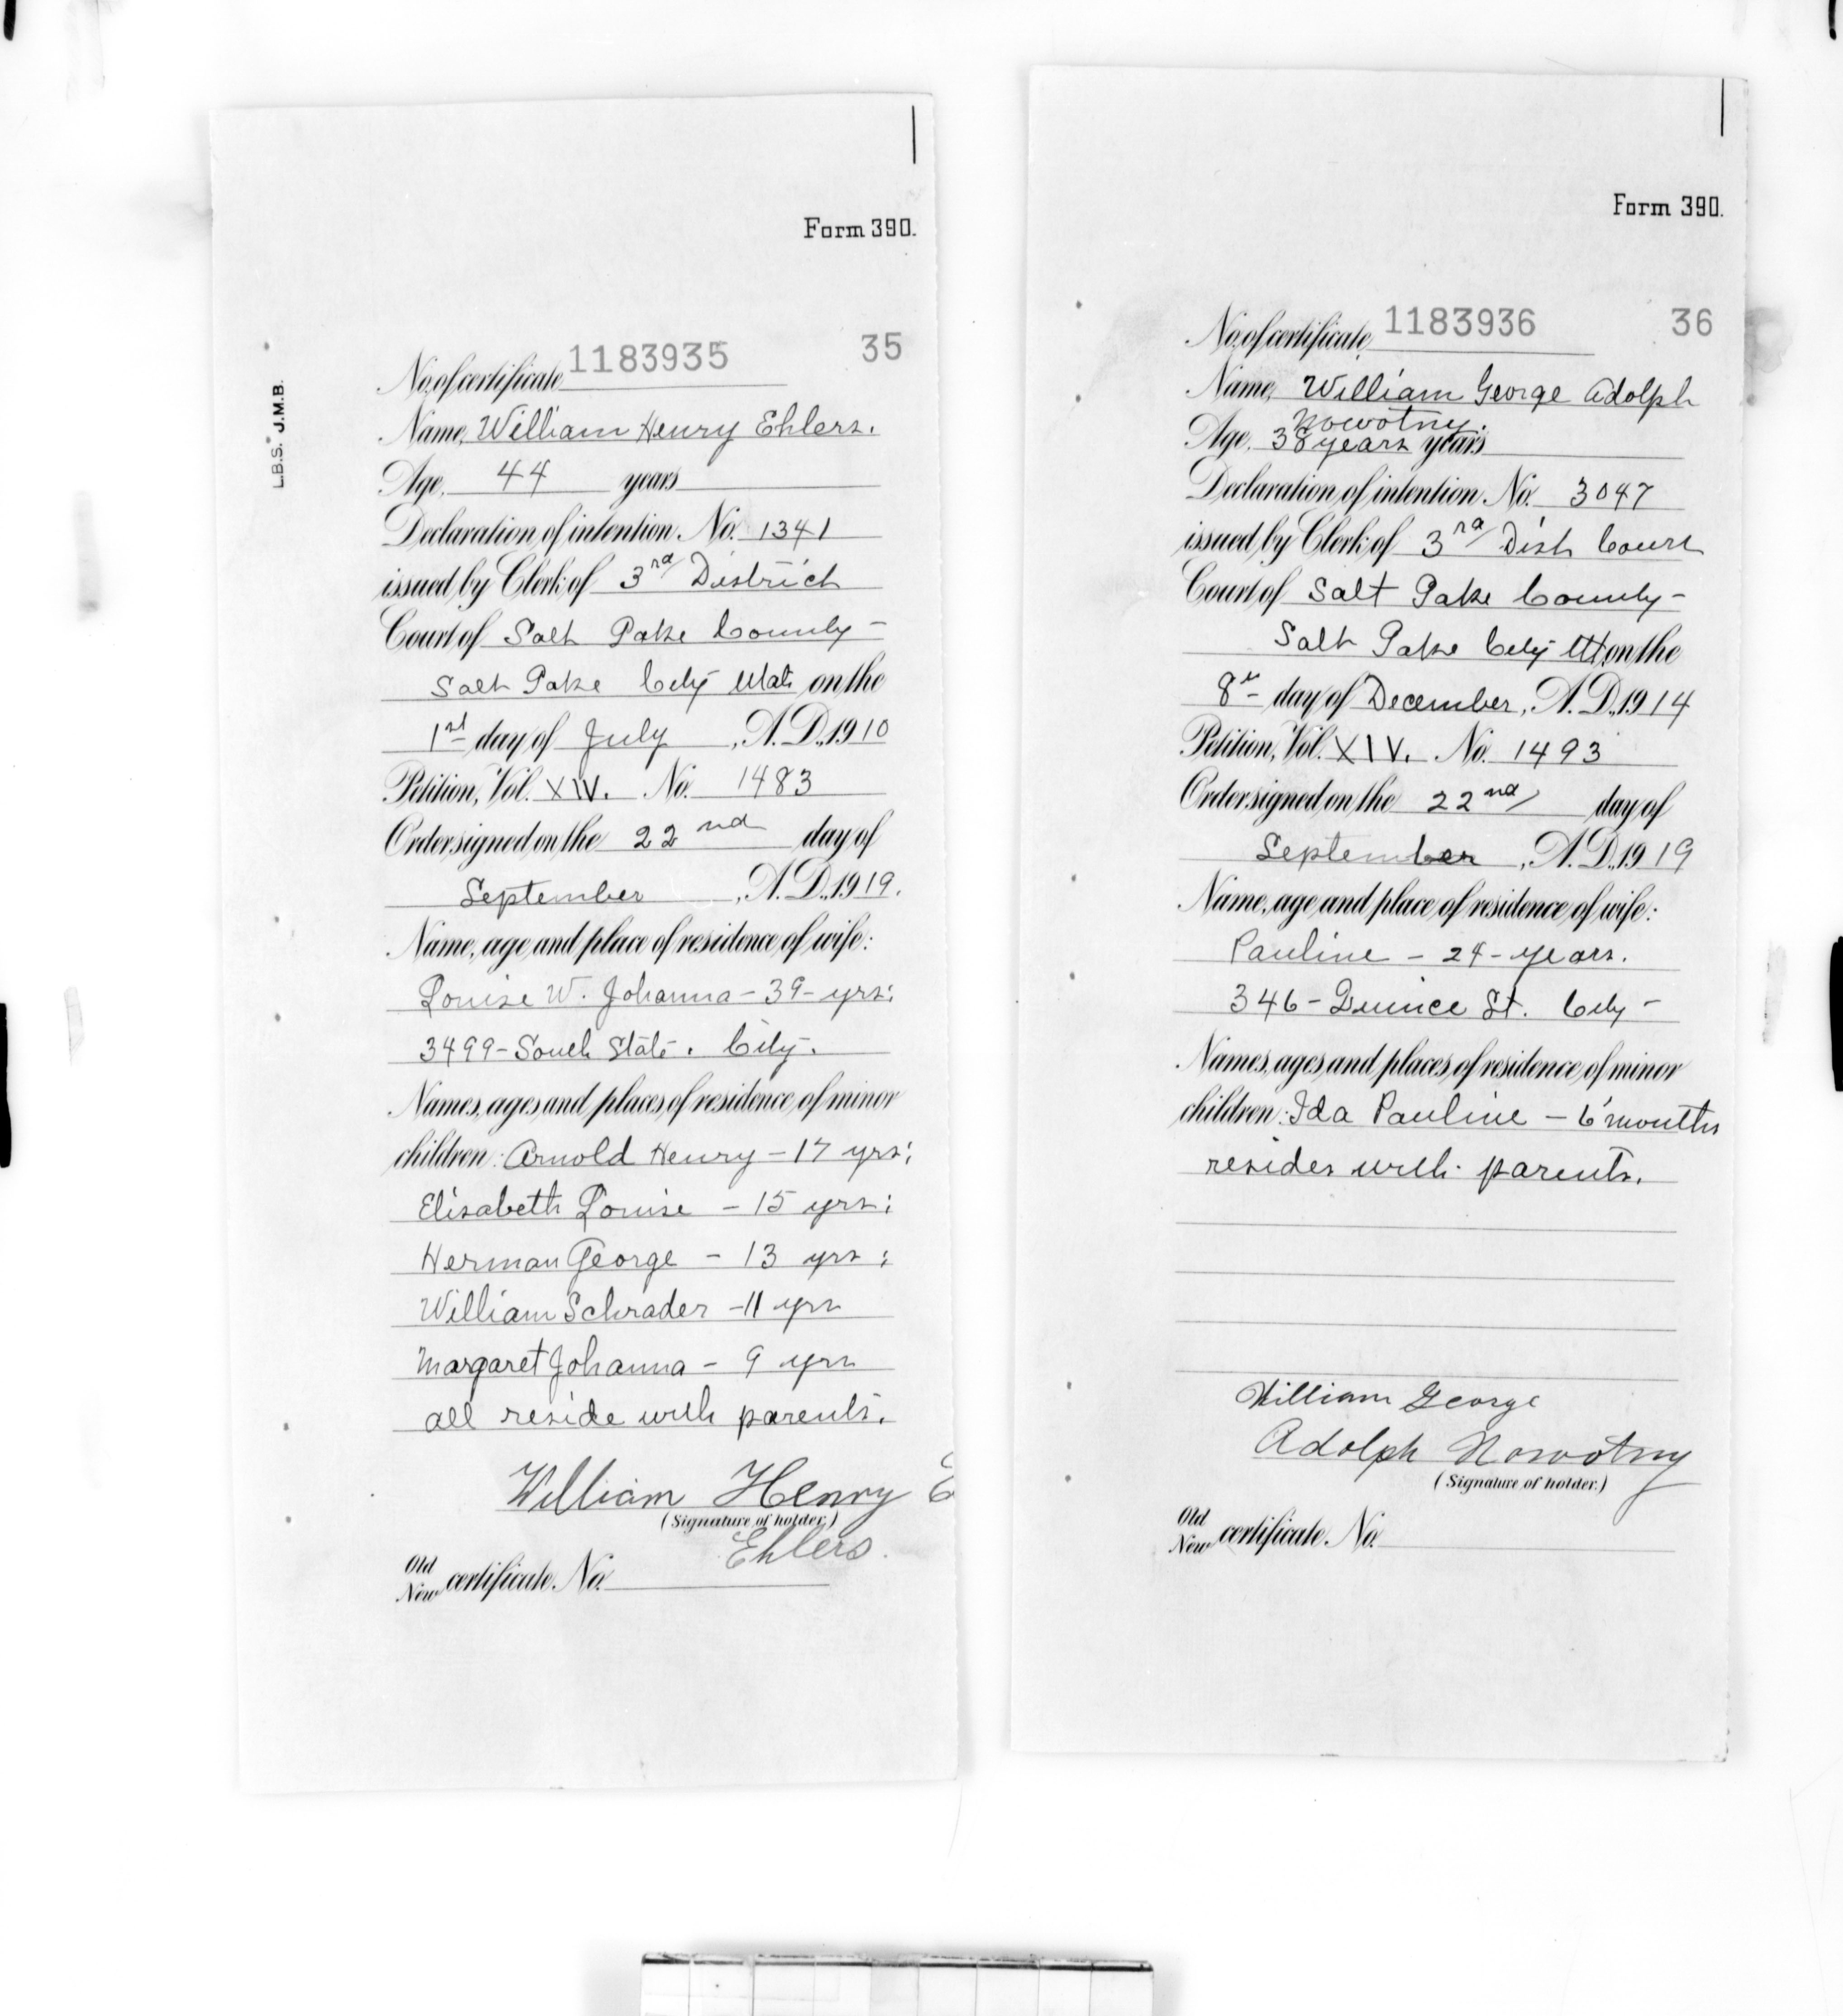 Form 390.
L.B.S. J.M.B.
No. of certificate 1183935 35
Name, William Henry Ehlers.
Age, 44 years
Declaration of intention No. 1341
issued by Clerk of 3rd District
Court of Salt Lake County -
Salt Lake City Utah on the
1st day of July, A.D., 1910
Petition, Vol. XIV. No. 1483
Order signed on the 22nd day of
September, A.D., 1919.
Name, age and place of residence of wife:
Louise W. Johanna - 39 - yrs;
3499 - South State. City.
Names, ages and places of residence of minor
children: Arnold Henry - 17 yrs;
Elisabeth Louise - 15 yrs;
Herman George - 13 yrs;
William Schrader - 11 yrs
Margaret Johanna - 9 yrs
all reside with parents.
William Henry E
(Signature of holder.)
Ehlers.
Old
New certificate No.
Form 390.
No. of certificate 1183936 36
Name, William George Adolph
Nowotny.
Age, 38 years years
Declaration of intention No. 3047
issued by Clerk of 3rd Dist Court
Court of Salt Lake County -
Salt Lake City Ut on the
8th day of December, A.D., 1914
Petition, Vol. XIV. No. 1493
Order signed on the 22nd day of
September, A.D., 1919
Name, age and place of residence of wife:
Pauline - 24 - years.
346 - Quince St. City -
Names, ages and places of residence of minor
children: Ida Pauline - 6 months
resides with parents.
William George
Adolph Nowotny
(Signature of holder.)
Old
New certificate No.